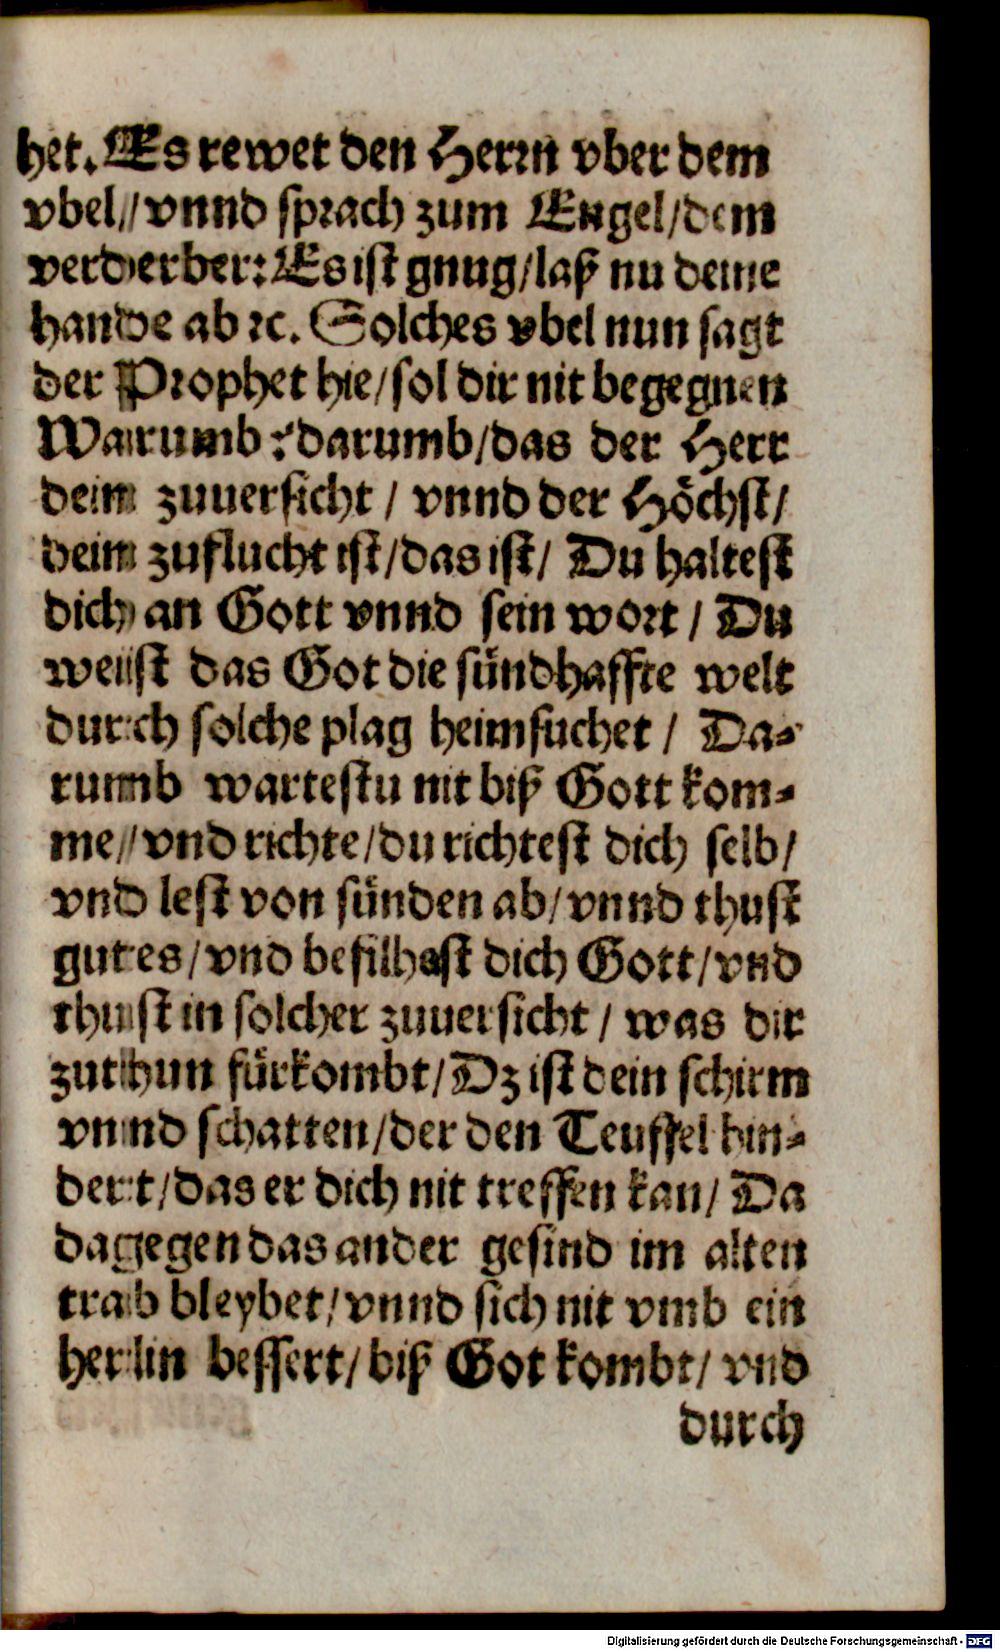 het. Es rewet den Herrn vber dem
vbel / vnnd sprach zum Engel / dem
verderber: Es ist gnug / laß nu deine
hande ab ꝛc. Solches vbel nun sagt
der Prophet hie / sol dir nit begegnen
Warumb? darumb / das der Herr
dein zuuersicht / vnnd der Höchst /
dein zuflucht ist / das ist / Du haltest
dich an Gott vnnd sein wort / Du
weist das Got die sündhaffte welt
durch solche plag heimsuchet / Da-
rumb wartestu nit biß Gott kom-
me / vnd richte / du richtest dich selb /
vnd lest von sünden ab / vnnd thust
gutes / vnd befilhest dich Gott / vnd
thust in solcher zuuersicht / was dir
zuthun fürkombt / Dz ist dein schirm
vnnd schatten / der den Teuffel hin-
dert / das er dich nit treffen kan / Da
dagegen das ander gesind im alten
trab bleybet / vnnd sich nit vmb ein
herlin bessert / biß Got kombt / vnd
durch
Digitalisierung gefördert durch die Deutsche Forschungsgemeinschaft - DFG